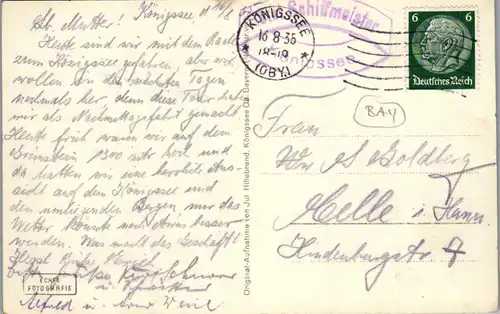 Lb. Mutter! Königssee d. 16/8
Heute sind wir mit den Rade
zum Königssee gefahren, aber wir
wollen in den nächsten Tagen
nochmals her, denn diese Tour haben
wir als Nachmittagsfahrt gemacht
Heute früh waren wir auf dem
Grünstein 1300 mtr hoch und
da hatten wir eine herrliche Aus-
sicht auf den Königssee und
den umliegenden Bergen nur das
Wetter könnte noch etwas besser
werden. Was macht das Geschäft?
Herzl. Grüße
Alfred u. Erna Weil
ECHTE
FOTOGRAFIE
Original-Aufnahme von Jul. Hillebrand, Königssee Ob. Bayern
KÖNIGSSEE
16 8 35
18-19
(OBY.)
Schiffmeister
Königssee
6 6
Deutsches Reich
BAY
Frau
Ww S Goldberg
Melle i. Hann.
Hindenburgstr 7